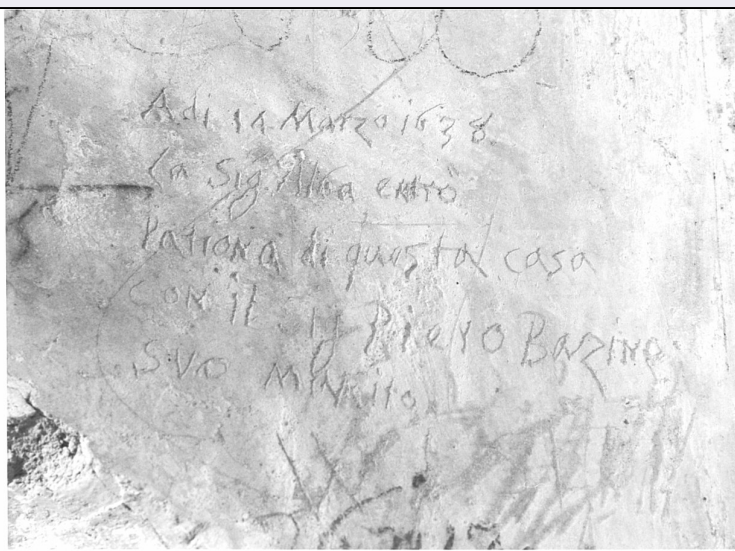 Adi 14 Marzo 1638
La Sig entrò
Patrona di questa casa
con il Sig Piero Bazino
Suo Marito